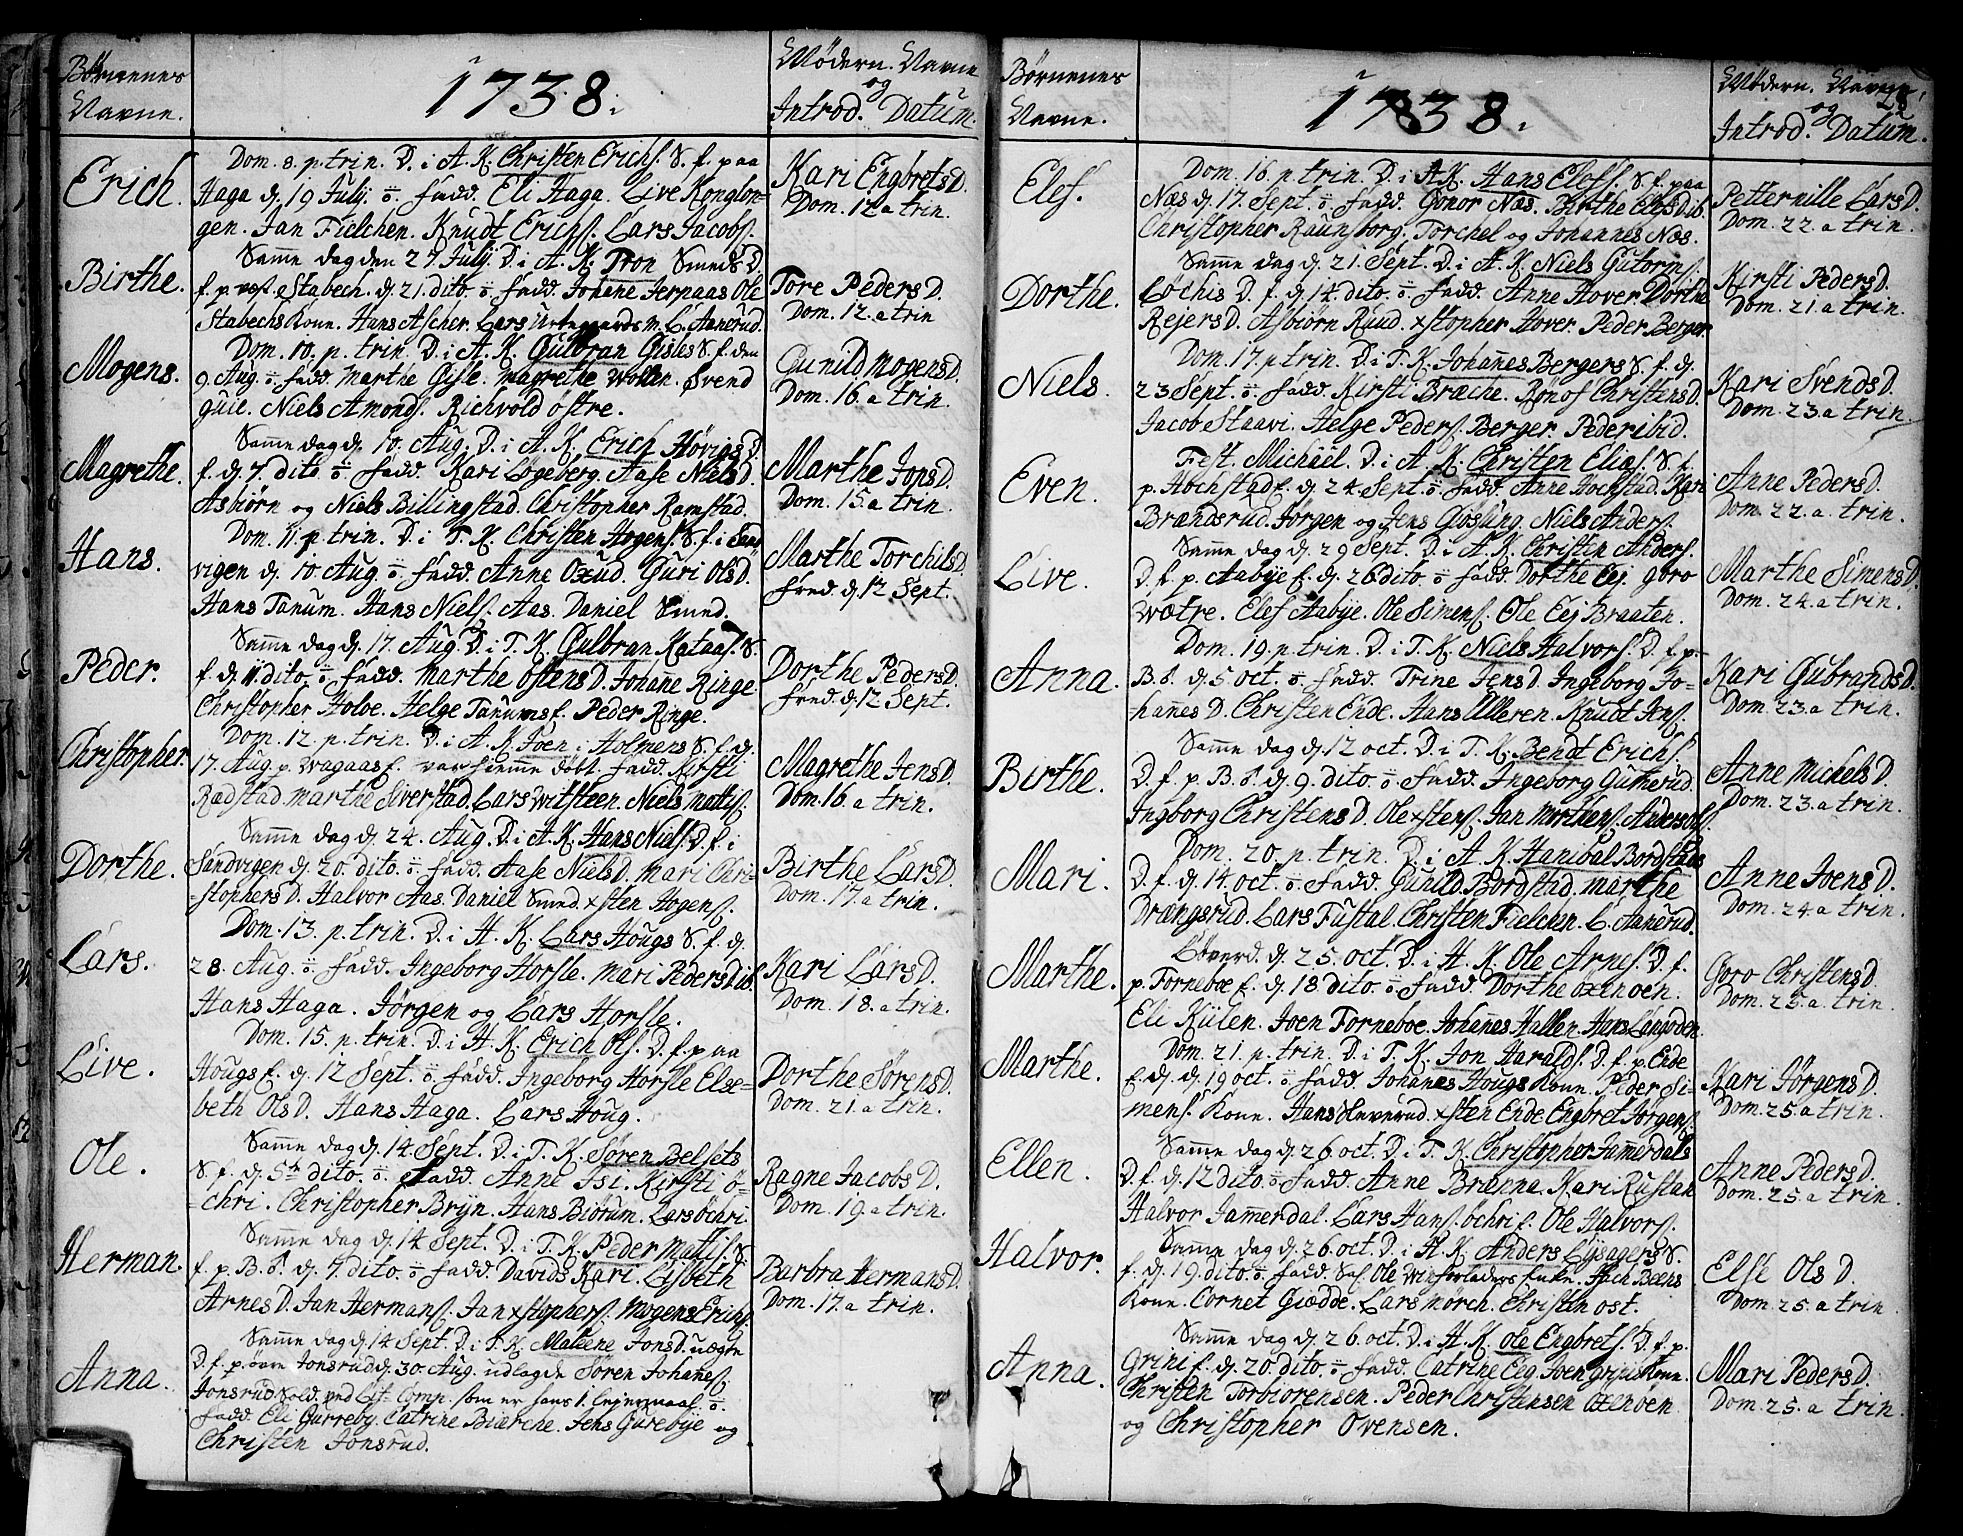 Børnenes
Navne.
1738.
Mødern. Navne
og
Introd. Datum.
Erich.
Dom. 8. p. trin. D. i A. K. Christen Erichs. S. f. paa
Haga d. 19 July. ÷ fadd. Eli Haga. Live Konglon-
gen. Jan Fielchen. Knudt Erichs. Lars Jacobs.
Kari EngbretsD.
Dom. 12. a trin.
Birthe.
Samme dag den 27 July. D. i A. K. Tron Smeds D.
f. p. Stabech. d. 21. dito. ÷ fadd. Johane Jerpaas Ole
Stabechs Kone. Hans Ascher. Lars m. L. Aanerud.
Tore PedersD.
Dom. 12. a trin
Mogens.
Dom. 10. p. trin. D. i A. K. Gulbran Gisles S. f. den
9. Aug. ÷ fadd. Marthe Gisle. Magrethe Wollen. Svend
Guie. Niels Amonds. Richvold østre.
Gunild MogensD.
Dom. 16. a trin.
Magrethe.
Samme dag d. 10. Aug. D. i A. K. Erich Høvigs D.
f. d. 7. dito ÷ fadd. Kari Løgeberg. Aase NielsD.
Asbiørn og Niels Billingstad. Christopher Ramstad.
Marthe JonsD.
Dom. 15. a trin.
Hans.
Dom. 11. p. trin. D. i T. K. Christen Hogens. S. f. i Sand
vigen d. 10. Aug. ÷ fadd. Anne Oxud. Guri OlsD.
Hans Tanum. Hans Niels. Aas. Daniel Smed.
Marthe TorchilsD.
fred. d. 12 Sept.
Peder.
Samme dag d. 17. Aug. D. i T. K. Gulbran Kataas. S.
f. d. 11. dito. ÷ fadd. Marthe østensD. Johane Ringe
Christopher Holoe. Helge Tanums f. Peder Ringe.
Dorthe PedersD.
fred. d. 12 Sept.
Christopher.
Dom. 12. p. trin. D. i A. K. Joen i Holmens S. f. d.
17. Aug. p. Wagaas f. var hiemme døbt. fadd. Kirsti
Radstad. Marthe Siverstad. Lars Witsteen. Niels Mattis.
Magrethe JensD.
Dom. 16. a trin.
Dorthe.
Samme dag d. 24. Aug. D. i A. K. Hans Niels. D. f. i
Sandvigen d. 20. dito. ÷ fadd. Aase NielsD. Mari Chri-
=stophersD. Halvor Aas. Daniel Smed. xsten Hogens.
Birthe LarsD.
Dom. 17. a trin.
Lars.
Dom. 13. p. trin. D. i A. K. Lars Hougs S. f. d.
28. Aug. ÷ fadd. Ingeborg Horsle. Mari PedersD. ib.
Hans Haga. Jørgen og Lars Horsle.
Kari LarsD.
Dom. 18. a trin.
Live.
Dom. 15. p. trin. D. i A. K. Erich Ols. D. f. paa
Hougs f. d. 12 Sept. ÷ fadd. Ingeborg Horsle Else=
beth OlsD. Hans Haga. Lars Houg.
Dorthe SørensD.
Dom. 21. a trin.
Ole.
Samme dag d. 14. Sept. D. i T. K. Søren Belsets
S. f. d. 5te dito. ÷ fadd. Anne Isi. Kirsti ø=
=chri. Christopher Bryn. Hans Biørum. Lars øchri.
Ragne JacobsD.
Dom. 19. a trin.
Herman.
Samme dag d. 14 Sept. D. i T. K. Peder Matis. S.
f. p. B. V. d. 7. dito. ÷ fadd. Davids Kari. Lisbeth
ArnesD. Jan Hermans. Jan xstophers. Mogens Erichs.
Barbra HermansD.
Dom. 17. a trin.
Anna.
Samme dag d. 14 Sept. D. i T. K. Maleene JonsD. uægte
D. f. p. øvre Jonsrud d. 30. Aug. udlagde Søren Johanes.
Jonsrud Sold. ved Comp. som er hans 1. Leyermaal. ÷
fadd. Eli Garreby. Catrine Biærche. Jens Garebye og
Christen Jonsrud.
Børnenes
Navne.
1738.
Mødern. Navne
28.
og
Introd. Datum.
Elef.
Dom. 16. p. trin. D. i A. K. Hans Elefs. S. f. paa
Næs d. 17. Sept. ÷ fadd. Gonor Næs. Birthe ElefsD. ib.
Christopher Raunsborg. Torchel og Johannes Næs.
Petternille LarsD.
Dom. 22. a trin.
Dorthe.
Samme dag d. 21. Sept. D. i A. K. Niels Gutorms.
Lochis D. f. d. 14. dito. ÷ fadd. Anne Hover. Dorthe
RejersD. Asbiørn Ruud. xstopher Hover. Peder Berger.
Kirsti PedersD.
Dom. 21. a trin.
Niels.
Dom. 17. p. trin. D. i T. K. Johanes Bergers S. f. d.
23 Sept. ÷ fadd. Kirsti Bræche. Rønof ChristensD.
Jacob Staavi. Helge Peders. Berger. Peder ibid.
Kari SvendsD.
Dom. 23. a trin.
Even.
Fest. Michaël. D. i A. K. Christen Elias. S. f.
p. Hochstad f. d. 24. Sept. ÷ fadd. Anne Hochstad. Kari
Brændsrud. Jørgen og Jens Gøsling. Niels Anders.
Anne PedersD.
Dom. 22. a. trin.
Live.
Samme dag d. 29 Sept. D. i A. K. Christen Anders.
D. f. p. Aabye f. d. 26 dito. ÷ fadd. Dorthe Eej. Goro
Wætre. Elef Aabye. Ole Simens. Ole Eej Braaten.
Marthe SimensD.
Dom. 24. a trin.
Anna.
Dom. 19. p. trin. D. i T. K. Niels Halvors. D. f. p.
B. V. d. 5 oct. ÷ fadd. Trine JensD. Ingeborg Jo=
=hanesD. Christen Ende. Hans Ulleren. Knudt Jens.
Kari GubrandsD.
Dom. 23. a trin.
Birthe.
Samme dag d. 12 oct. D. i T. K. Bendt Erichs.
D. f. p. B. V. d. 9. dito. ÷ fadd. Ingeborg Gutterud.
Ingborg ChristensD. Ole xsters. Jan Morthens. Anders Ols.
Anne MichelsD.
Dom. 23. a trin.
Mari.
Dom. 20. p. trin. D. i A. K. Hanibal Bordstads
D. f. d. 14. oct. ÷ fadd. Gunild Bordstad. Marthe
Drængsrud. Lars Fustal. Christen Fielchen. L. Aanerud.
Anne JoensD.
Dom. 24. a trin.
Marthe.
Løverd. d. 25. oct. D. i A. K. Ole Arnes. D. f.
p. Forneboe f. d. 18 dito. ÷ fadd. Dorthe oxenøen.
Eli Kiilen. Joen Forneboe. Johanes Hallen. Hans Langodden.
Goro ChristensD.
Dom. 25. a trin.
Marthe.
Dom. 21. p. trin. D. i T. K. Jon Haralds. D. f. p. Ende
E. d. d. 19 oct. ÷ fadd. Johanes Hougs Kone. Peder Si-
mens. Kone. Hans Haverud. xsten Ende. Engbret Jørgens.
Kari JørgensD.
Dom. 25. a trin.
Ellen.
Samme dag d. 26 oct. D. i T. K. Christopher Jammerdals
D. f. d. 12 dito. ÷ fadd. Anne Brænna. Kari Rustan
Halvor Jammerdal. Lars Hans. øchri f. Ole Halvors.
Anne PedersD.
Dom. 25. a trin.
Halvor.
Samme dag d. 26. oct. D. i A. K. Anders Lysagers S.
f. d. 19. dito. ÷ fadd. Sal. Ole Winforladers Enke. Isach Beens
Kone. Cornet Giædde. Lars Mørch. Christen ost.
Else OlsD.
Dom. 25. a trin.
Anna.
Samme dag d. 26. oct. D. i A. K. ole Engbrets. D. f. p.
Grini f. d. 20. dito. ÷ fadd. Catrine Eeg. Joen Grini Kone.
Christen Torbiorensen. Peder Christensen oxenøen
og Christopher Ovensen.
Mari PedersD.
Dom. 25. a trin.